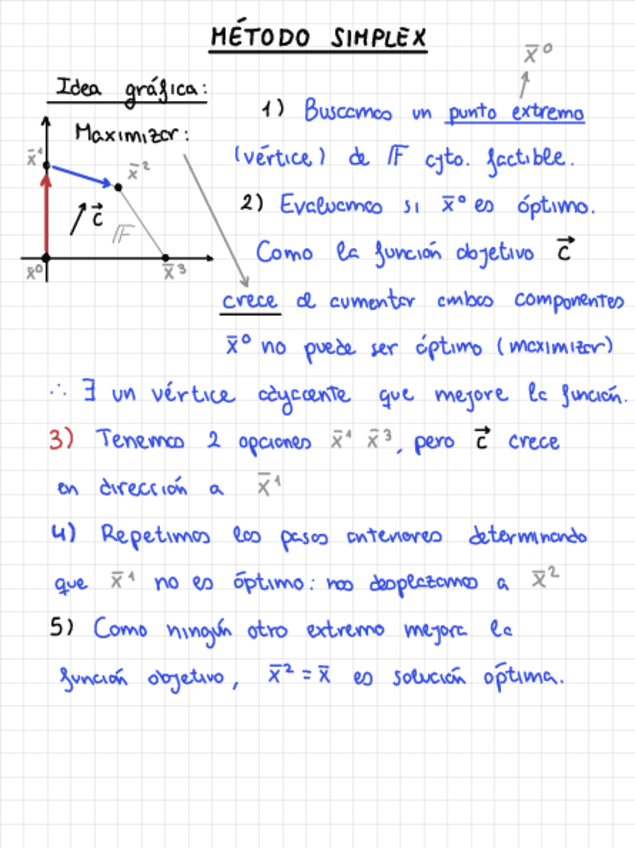 MÉTODO SIMPLEX
x̄⁰
Idea gráfica:
Maximizar:
x̄¹
x̄²
c⃗
F
x̄⁰
x̄³
1) Buscamos un punto extremo
(vértice) de F cjto. factible.
2) Evaluamos si x̄⁰ es óptimo.
Como la función objetivo c⃗
crece al aumentar ambas componentes
x̄⁰ no puede ser óptimo (maximizar)
∴ ∃ un vértice adyacente que mejore la función.
3) Tenemos 2 opciones x̄¹ x̄³, pero c⃗ crece
en dirección a x̄¹
4) Repetimos los pasos anteriores determinando
que x̄¹ no es óptimo: nos desplazamos a x̄²
5) Como ningún otro extremo mejora la
función objetivo, x̄² = x̄ es solución óptima.